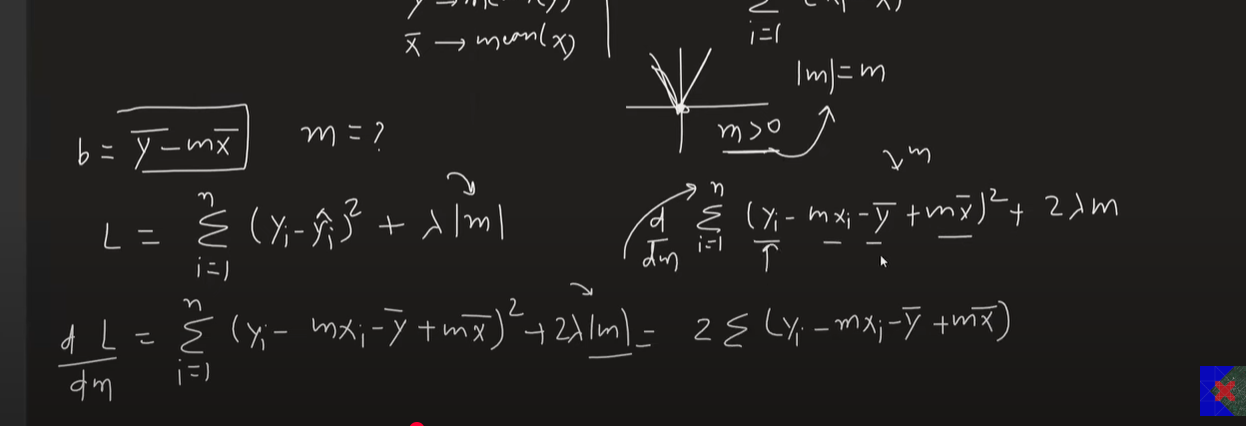 x̄ → mean(x)
i=1
|m|=m
m>0
b = ȳ - mx̄
m = ?
↓m
L = Σ_{i=1}^{n} (yᵢ - ŷᵢ)² + λ|m|
d/dm Σ_{i=1}^{n} (yᵢ - mxᵢ - ȳ + mx̄)² + 2λm
dL/dm = Σ_{i=1}^{n} (yᵢ - mxᵢ - ȳ + mx̄)² + 2λ|m| = 2Σ (yᵢ - mxᵢ - ȳ + mx̄)